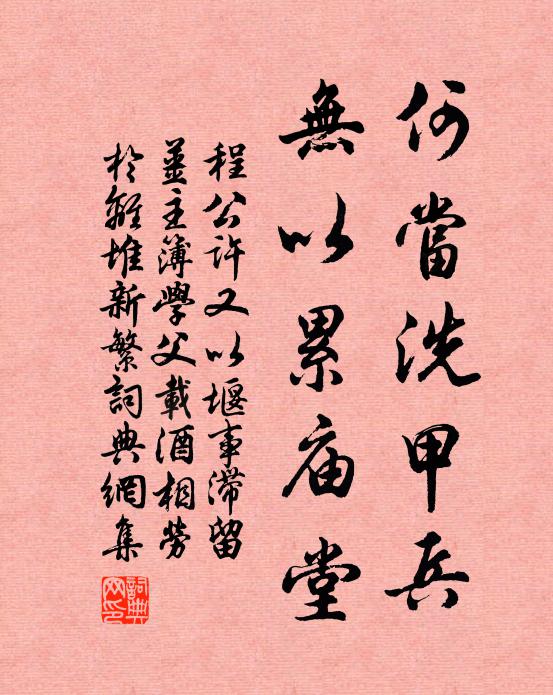 何當洗甲兵
無以累庙堂
程公許又以堰事滯留
姜主簿學父載酒相勞
於離堆新繁詞典網集
詞典网印